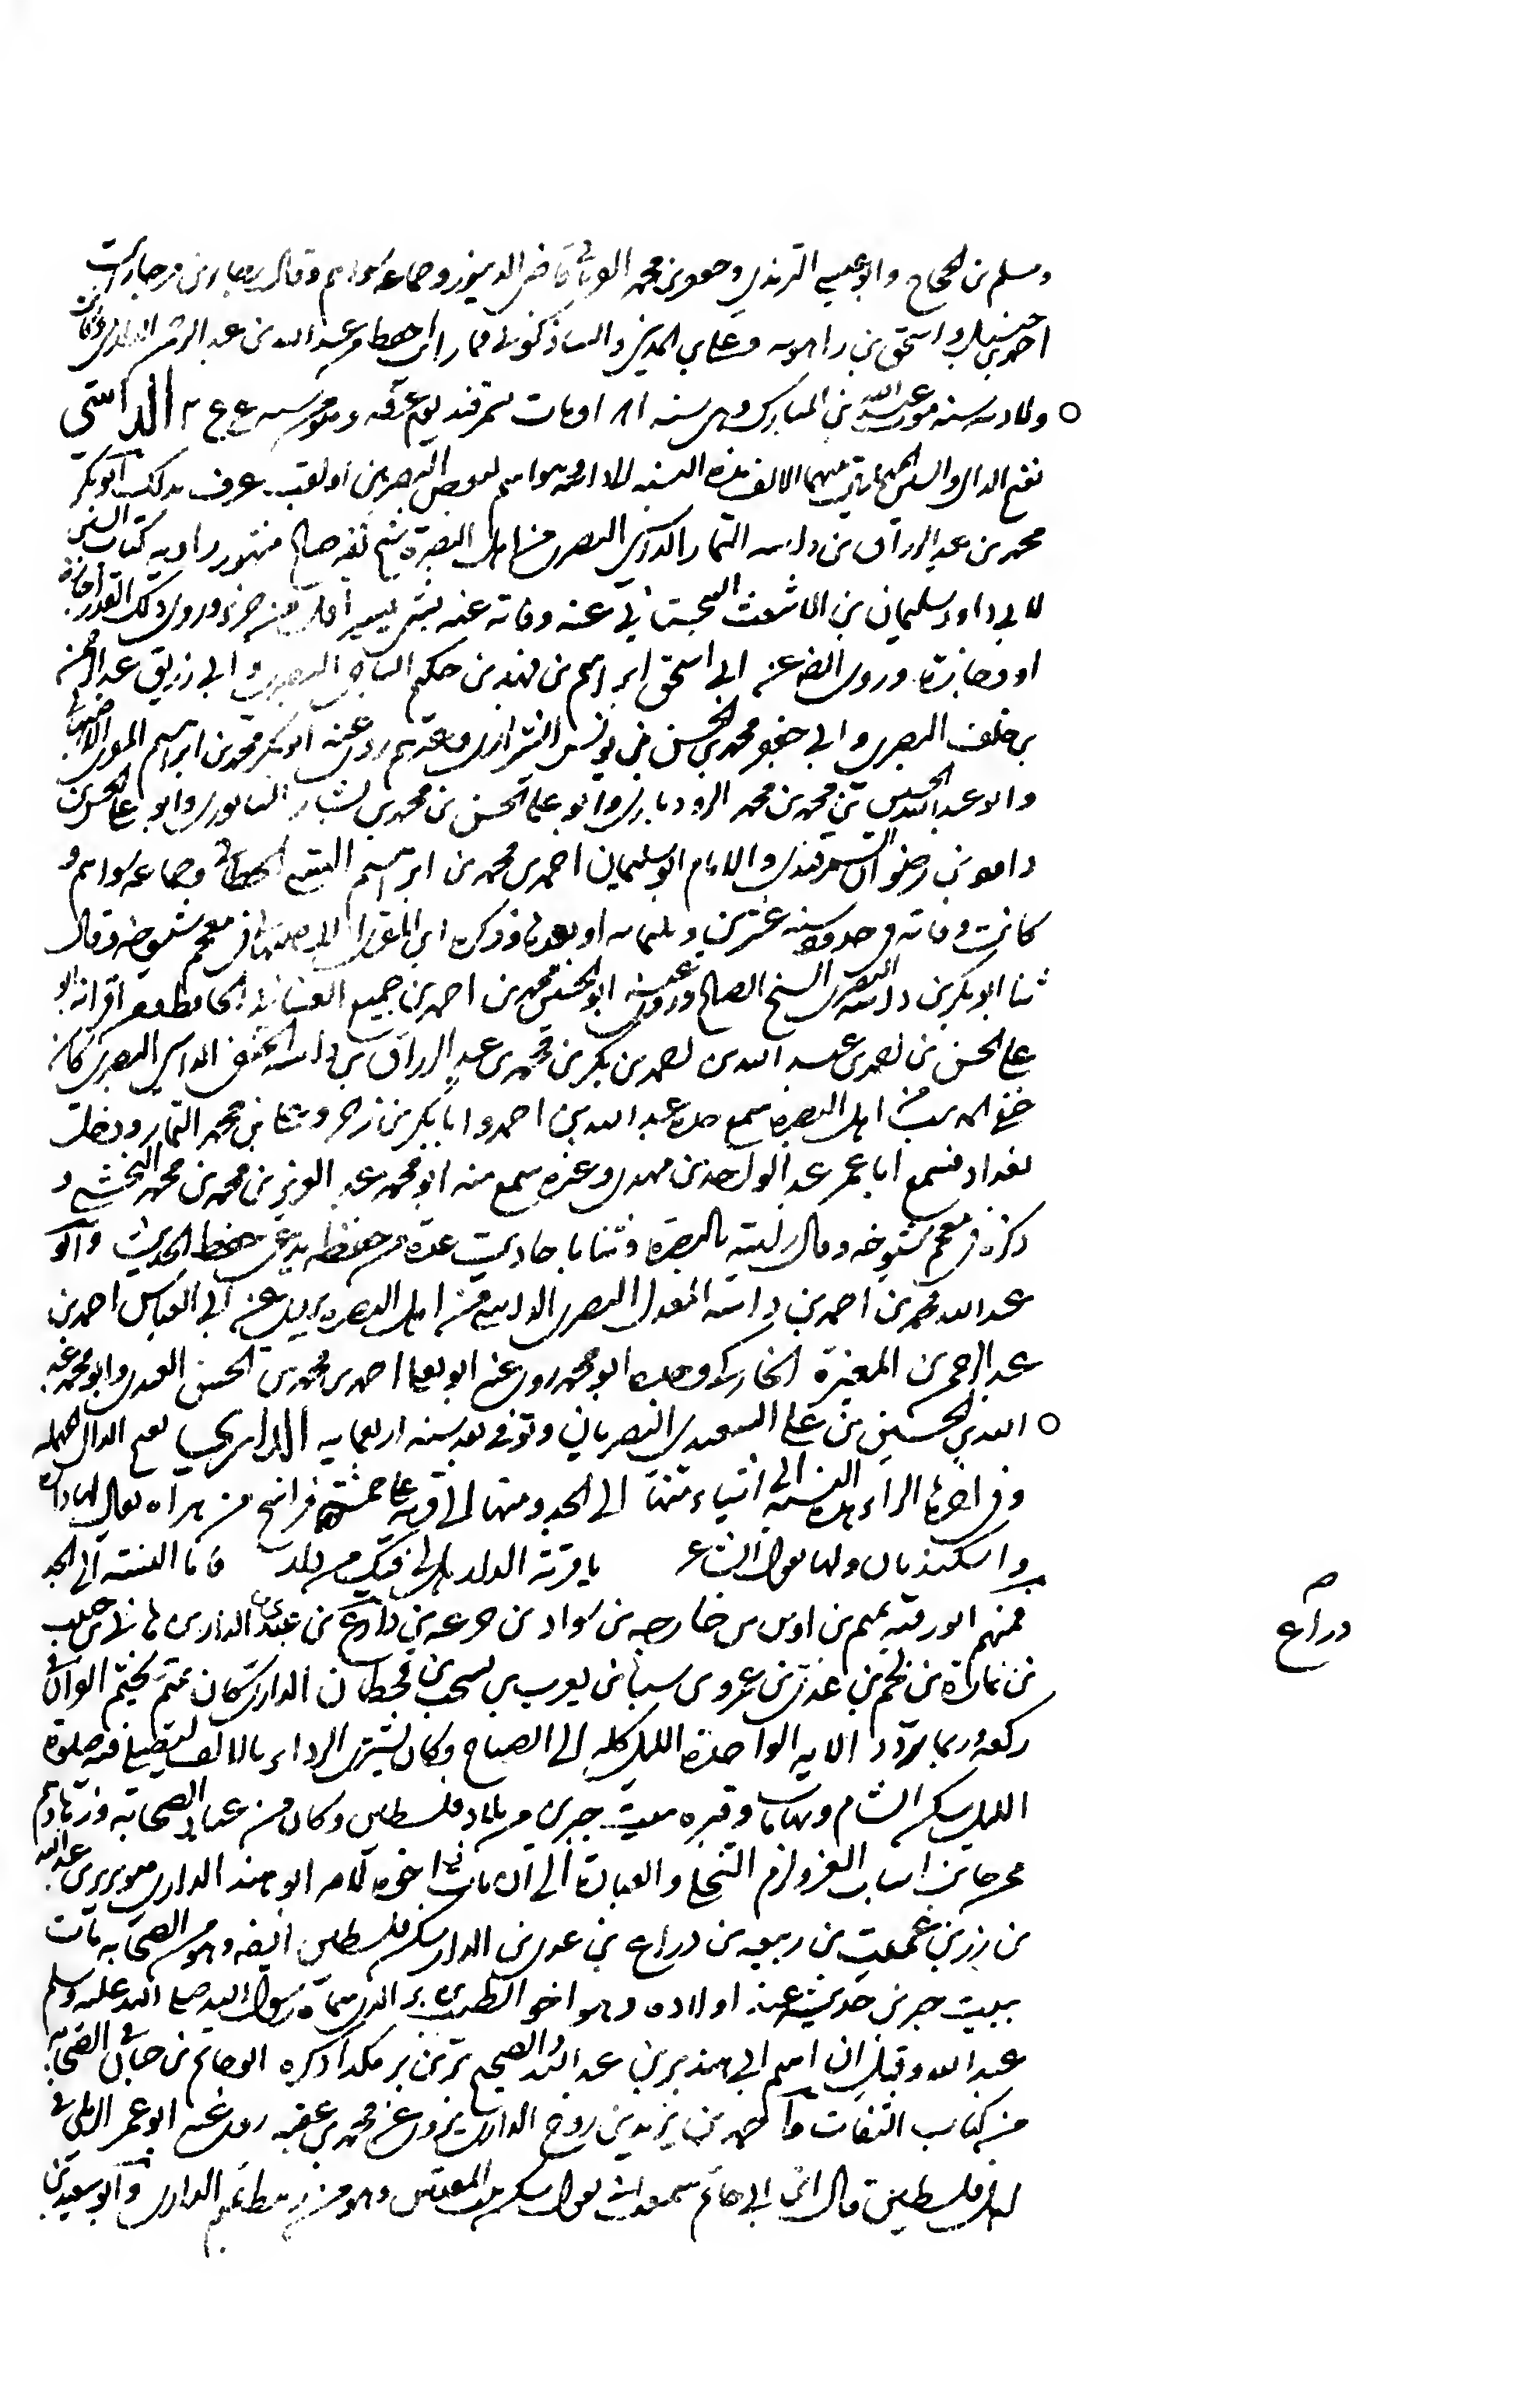 ومسلم بن الحجاج وابو عيسى الترمذي وجعفر بن محمد الفريابي قاضي الدينور وجماعة سواهم وقال رجاء بن مرجا رايت
احمد بن حنبل واسحق بن راهويه وعلي بن المديني والشاذكوني فما رايت احفظ من عبد الله بن عبد الرحمن الدارمي وكانت
ولادته سنة موت عبد الله بن المبارك وهي سنة ١٨١ ومات بسمرقند يوم عرفة الداسي
بفتح الدال والسين المهملتين بينهما الالف هذه النسبة الى داسه وهو اسم لبعض البصريين او لقب عرف بذلك ابو بكر
محمد بن عبد الرزاق بن داسه التمار الداسي البصري من اهل البصرة شيخ ثقة صالح مشهور راويه كتاب السنن
لابي داود سليمان بن الاشعث السجستاني عنه وفاته عنه شي يسير اقل من جزء وروى ذلك القدر اجازة
او وجازة وروى ايضا عن ابي اسحق ابراهيم بن فهد بن حكيم الساجي البصري وابي زريق عبد الرحمن
بن خلف البصري وابي جعفر محمد بن الحسن بن يونس الشيرازي وغيرهم روى عنه ابو بكر محمد بن ابراهيم المقري الاصبهاني
وابو عبد الله الحسين بن محمد بن محمد الروذباري وابو علي الحسن بن محمد بن بشار النيسابوري وابو علي الحسن بن
داود بن رضوان السمرقندي والامام ابو سليمان احمد بن محمد بن ابراهيم الفقيه الخطابي وجماعة سواهم و
كانت وفاته في حدود سنة عشرين وثلثمايه او بعدها وذكره ابن المقري الاصبهاني في معجم شيوخه وقال
ثنا ابو بكر بن داسه البصري الشيخ الصالح وروى عنه ابو الحسين محمد بن احمد بن جميع الغساني الحافظ ومن اقرانه ابو
علي الحسن بن احمد بن عبد الله بن احمد بن بكر بن محمد بن عبد الرزاق بن داسه الحنفي الداسي البصري كان
شيخ من اهل البصرة سمع جده عبد الله بن احمد وابا بكر بن زحر وعلي بن محمد التمار ودخل
بغداد فسمع ابا عمر عبد الواحد بن مهدي وغيره سمع منه ابو محمد عبد العزيز بن محمد بن محمد النخشبي و
ذكره في معجم شيوخه وقال رايته بالبصرة وثنا باحاديث عدة من حفظه يدعي حفظ الحديث وابو
عبد الله محمد بن احمد بن داسه المعدل البصري الداسي من اهل البصرة يروي عن ابي العباس احمد بن
عبد الرحمن المغيرة الخاركي وجده ابو محمد روى عنه ابو يعلى احمد بن محمد بن الحسن العبدي وابو محمد عبد
الله بن الحسين بن علي السعيدي البصريان وتوفي بعد سنة اربعمايه الداري بفتح الدال المهملة
وفي اخرها الراء هذه النسبة الى اشياء منها الى الجد ومنها الى قرية على خمسة فراسخ من هراه يقال لها داره
واسكيذبان ولها يقول الشاعر يا قرية الدار هل لي فيك من دار فاما النسبة الى الجد
فمنهم ابو رقيه تميم بن اوس بن خارجه بن سواد بن جزعه بن دراع بن عدي الداري هاني بن حبيب
بن نماره بن لخم بن عدي بن عمرو بن سبا بن يعرب بن يشجب بن قحطان الداري كان تميم يختم القران في
ركعة وربما يردد الايه الواحدة الليل كله الى الصباح وكان يشتري الرداء بالالف ليصلي فيه صلوة
الليل سكن الشام وبها مات وقبره ببيت جبرين من بلاد فلسطين وكان من عباد الصحابة وزهادهم
ممن جانب اسباب الغرور ولزم التخلي والعبادة الى ان مات اخوه لامه ابو هند الداري هو برير بن عبد الله
بن رزين بن عميت بن ربيعه بن دراع بن عدي بن الدار سكن فلسطين ايضا وهو من الصحابه مات
ببيت جبرين حديثه عند اولاده وهو اخو الطيب بن بر الذي سماه رسول الله صلى الله عليه وسلم
عبد الله وقيل ان اسم ابي هند برير بن عبد الله والصحيح بر بن بر هكذا ذكره ابو حاتم بن حبان في الصحابه
من كتاب الثقات واحمد بن يزيد بن روح الداري يروي عن محمد بن عقبه روى عنه ابو عمر الرملي في
اهل فلسطين قال ابن ابي حاتم سمعت ابي يقول سكن بيت المقدس وهو من رهط تميم الداري وابو سعيد بن
صح
دراع